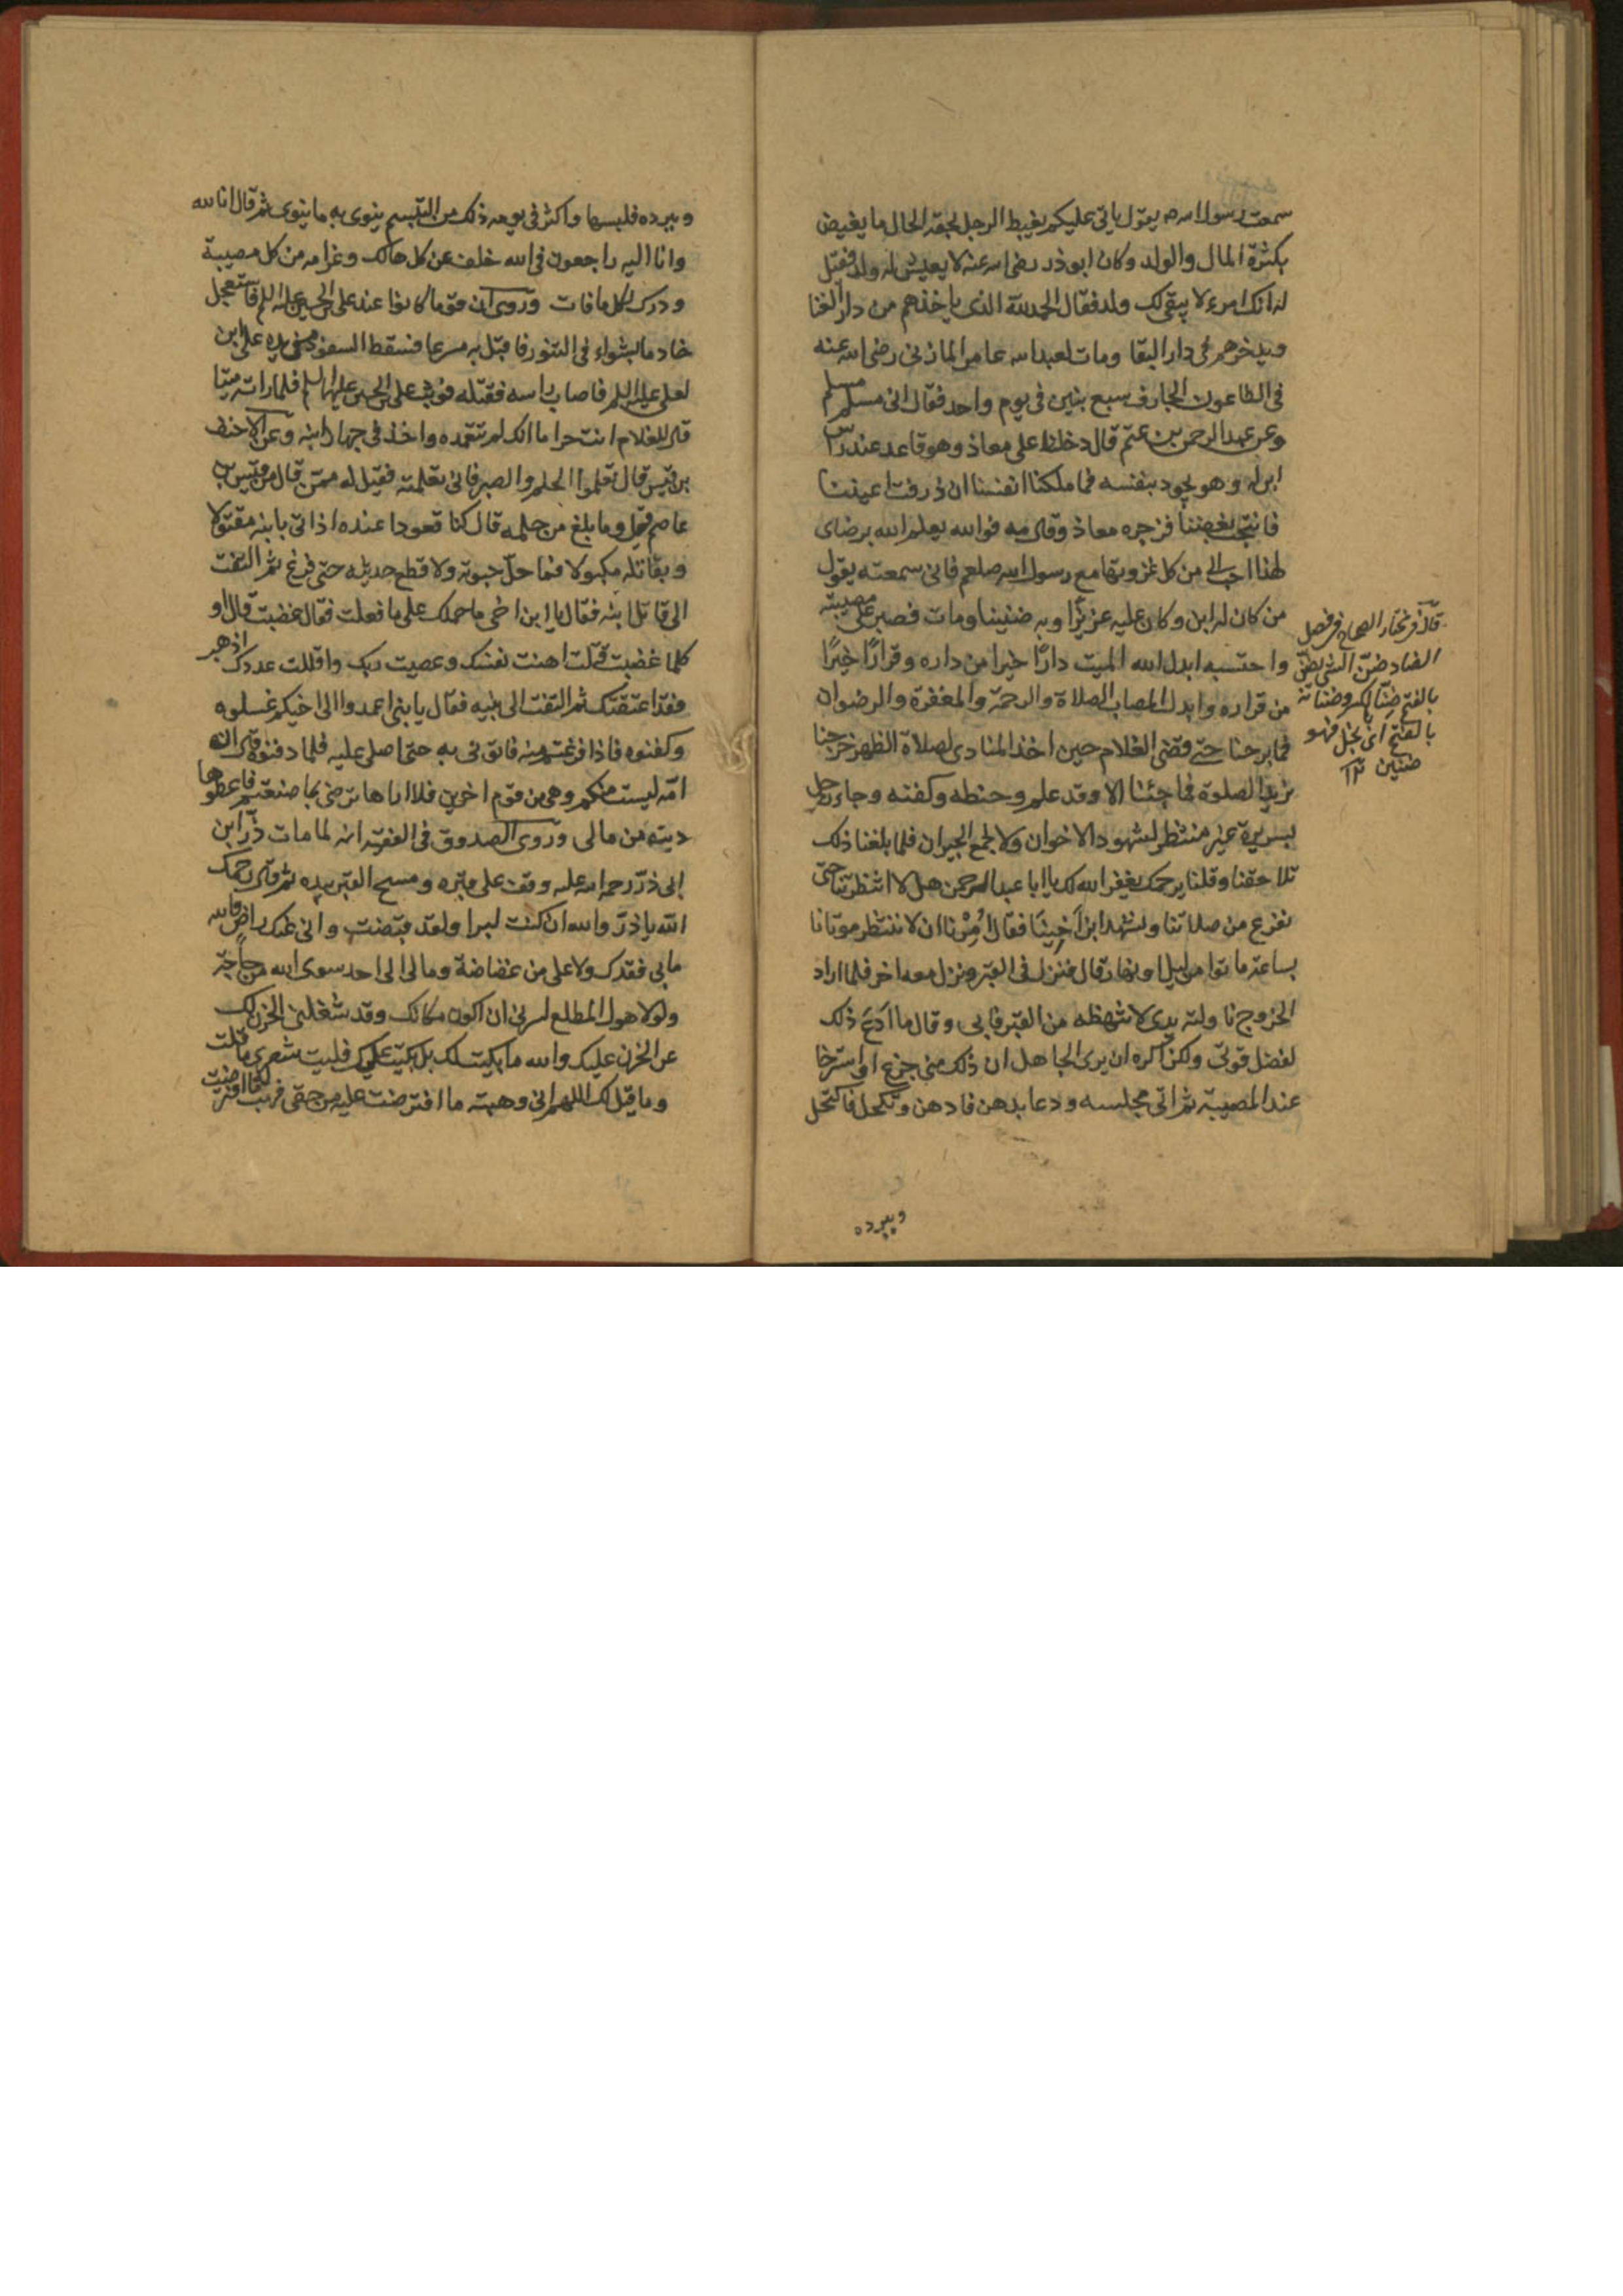 سمعت رسول الله ص يقول ياتى عليكم يغبط الرجل لخفة الحال ما يغيض
بكثرة المال والولد وكان ابوذر رضى الله عنه لا يعيش له ولد فقيل
له انك امرء لا يبقى لك ولد فقال الحمد لله الذى ياخذهم من دار الفنا
ويدخرهم فى دار البقا ومات لعبد الله عامر المازنى رضى الله عنه
فى الطاعون الجارف سبع بنين فى يوم واحد فقال انى مسلم مسلم
وعن عبد الرحمن بن عتم قال دخلنا على معاذ وهو قاعد عند راس
ابن له وهو يجود بنفسه فما ملكنا انفسنا ان ذرفت اعيننا
فانتحب بعضنا فزجره معاذ وقال مه فوالله يعلم الله برضاى
لهذا احب الى من كل غزوتها مع رسول الله صلعم فانى سمعته يقول
من كان له ابن وكان عليه عزيزا وبه ضنينا ومات فصبر على مصيبته
واحتسبه ابدل الله الميت دارًا خيرا من داره وقرارًا خيرًا
من قراره وابدل المصاب الصلاة والرحمة والمغفرة والرضوان
فما برحنا حتى قضى الغلام حين اخذ المنادى لصلاة الظهر خرجنا
نريد الصلوة فما جئنا الا وقد غسله وحنطه وكفنه وجاء رجل
بسريره غير منتظر لشهود الاخوان ولا لجمع الجيران فلما بلغنا ذلك
تلاحقنا وقلنا يرحمك يغفر الله لك يا ابا عبد الرحمن هلا انتظرتنا حتى
نفرغ من صلاتنا ونشهد ابن اخينا فقال امرنا ان لا ننتظر موتانا
بساعة ماتوا من ليل او نهار قال فنزل فى القبر ونزل معه اخر فلما اراد
الخروج ناولته يدى لانتهظه من القبر فابى وقال ما ادع ذلك
لفضل قوتى ولكن اكره ان يرى الجاهل ان ذلك منى جزع او استرخا
عند المصيبة ثم اتى مجلسه ودعا بدهن فادهن وبكحل فاكتحل
قال فى مختار الصحاح فى فصل
الضاد ضن الشى يضن
بالفتح ضنا بالكسر وضنانة
بالفتح اى بخل فهو
ضنين
وببرده
وببرده فلبسها واكثر فى يومه ذلك من التبسم ينوى به ما ينوى ثم قال انا لله
وانا اليه راجعون فى الله خلف عن كل هالك وعزاء من كل مصيبة
ودرك لكل ما فات وروى ان قوما كانوا عند على بن الحسين عليه السلم فاستعجل
خادما بشواء فى التنور فاقبل به مسرعا فسقط السفود من يده على ابن
لعلى عليه السلم فاصاب راسه فقتله فوثب على بن الحسين عليهما السلم فلما راه ميتا
قال للغلام انت حر اما انك لم تتعمده واخذ فى جهاز ابنه وعن الاحنف
بن قيس قال تعلموا الحلم والصبر فانى تعلمته فقيل له ممن قال من قيس بن
عاصم قيل وما بلغ من حلمه قال كنا قعودا عنده اذ اتى بابنه مقتولا
وبقاتله مكبولا فما حل حبوته ولا قطع حديثه حتى فرغ ثم التفت
الى قاتل ابنه فقال يا ابن اخى ما حملك على ما فعلت فقال غضبت قال او
كلما غضبت قتلت اهنت نفسك وعصيت ربك واقللت عددك اذهب
فقد اعتقتك ثم التفت الى بنيه فقال يا بنى اعمدوا الى اخيكم غسلوه
وكفنوه فاذا فرغتم منه فاتونى به حتى اصلى عليه فلما دفنوه قال ان
امه ليست منكم وهى من قوم اخرين فلا اراها ترضى بما صنعتم فاعطوها
ديته من مالى وروى الصدوق فى الفقيه انه لما مات ذر ابن
ابى ذر رحمه الله عليه وقف على قبره ومسح القبر بيده ثم قال رحمك
الله يا ذر والله ان كنت لبرا ولقد قبضت وانى عنك راض والله
ما بى فقدك ولا على من غضاضة وما لى الى احد سوى الله من حاجة
ولولا هول المطلع لسرنى ان اكون مكانك وقد شغلنى الحزن لك
عن الحزن عليك والله ما بكيت لك بل بكيت عليك فليت شعرى ما قلت
وما قيل لك اللهم انى وهبته ما افترضت عليه من حقى فهب له ما افترضت